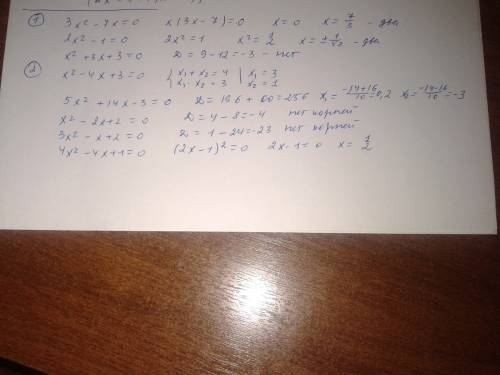 ① 3x² - 7x = 0 x(3x - 7) = 0 x = 0 x = 7/3 - два
2x² - 1 = 0 2x² = 1 x² = 1/2 x = ± 1/√2 - два
x² + 3x + 3 = 0 D = 9 - 12 = -3 - нет
② x² - 4x + 3 = 0 { x₁ + x₂ = 4 | x₁ = 3
x₁ · x₂ = 3 | x₂ = 1
5x² + 14x - 3 = 0 D = 196 + 60 = 256 x₁ = (-14+16)/10 = 0,2 x₂ = (-14-16)/10 = -3
x² - 2x + 2 = 0 D = 4 - 8 = -4 нет корней
3x² - x + 2 = 0 D = 1 - 24 = -23 нет корней
4x² - 4x + 1 = 0 (2x - 1)² = 0 2x - 1 = 0 x = 1/2